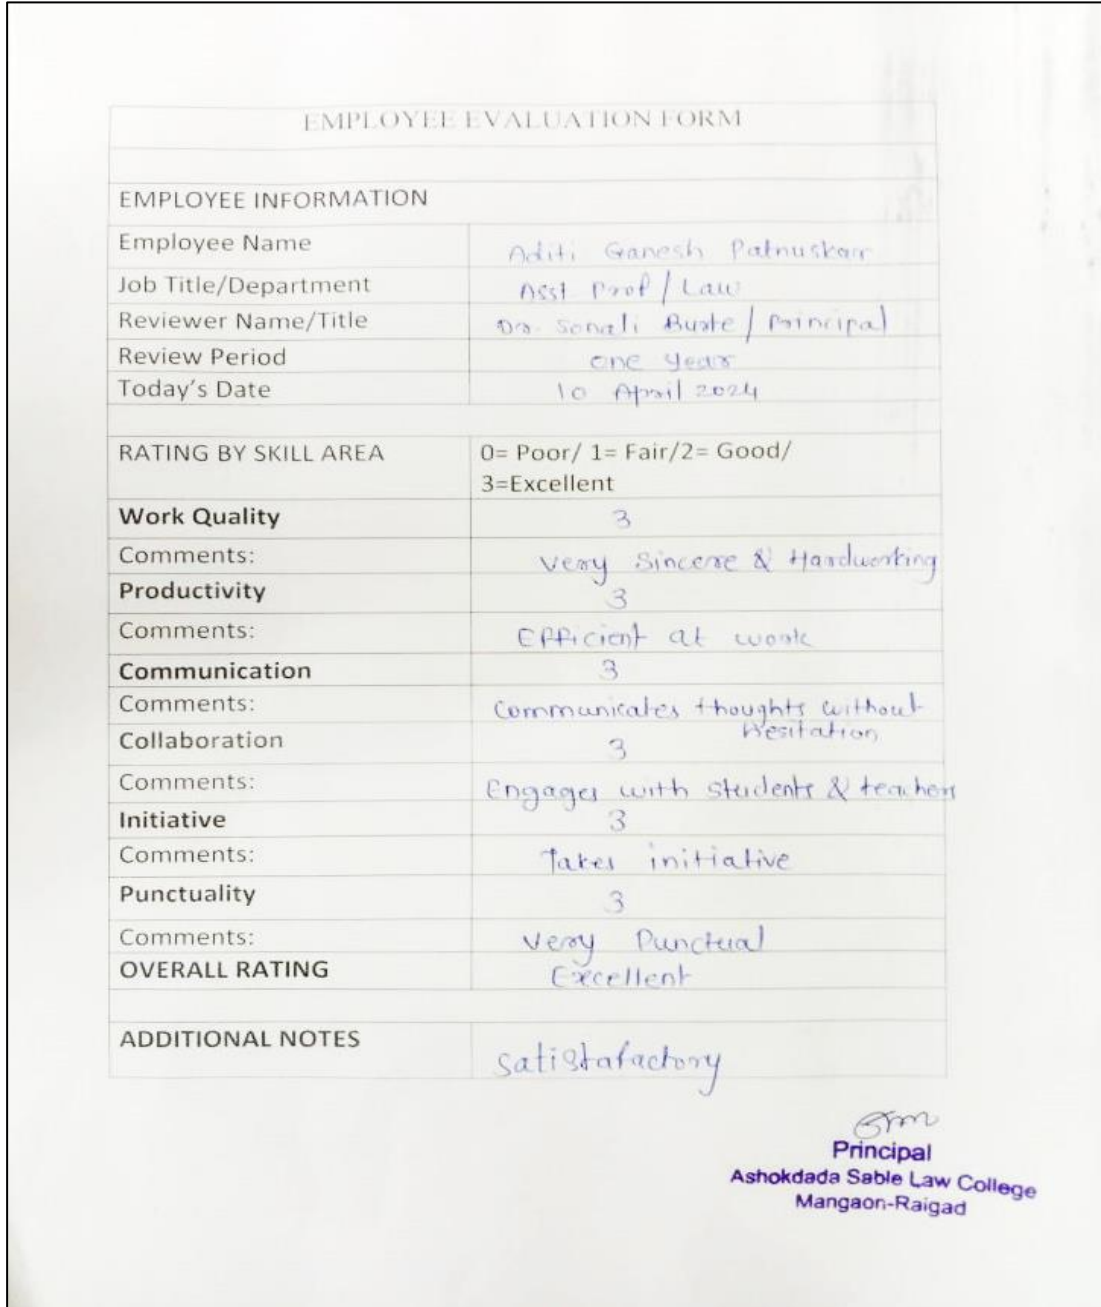 EMPLOYEE EVALUATION FORM
EMPLOYEE INFORMATION
Employee Name Aditi Ganesh Patnuskar
Job Title/Department Asst Prof / Law
Reviewer Name/Title Dr. Sonali / Principal
Review Period one Year
Today's Date 10 April 2024
RATING BY SKILL AREA 0= Poor/ 1= Fair/2= Good/
3=Excellent
Work Quality 3
Comments: Very Sincere & Hardworking
Productivity 3
Comments: Efficient at work
Communication 3
Comments: Communicates thoughts without
Hesitation
Collaboration 3
Comments: Engages with students & teachers
Initiative 3
Comments: Takes initiative
Punctuality 3
Comments: Very Punctual
OVERALL RATING Excellent
ADDITIONAL NOTES Satistafactory
Principal
Ashokdada Sable Law College
Mangaon-Raigad